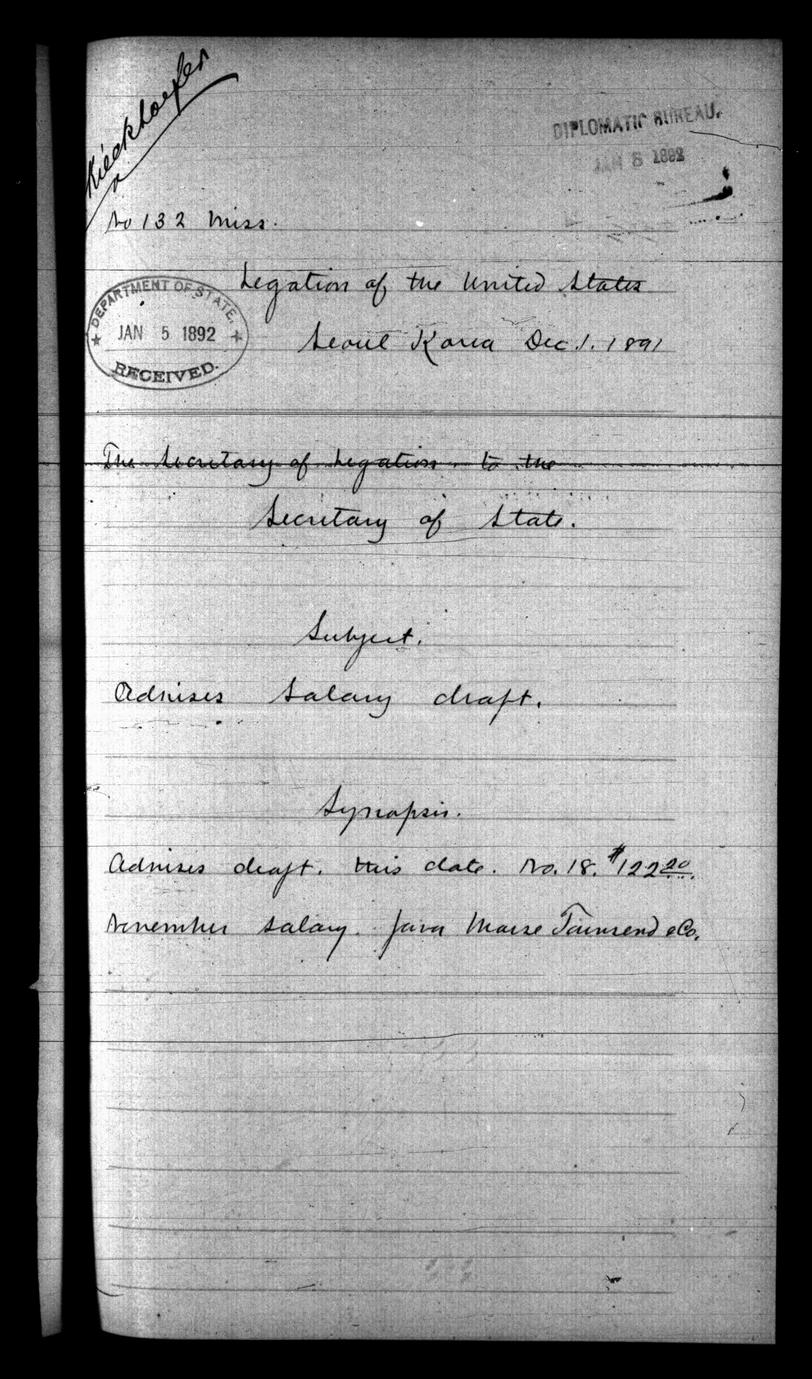 Kieckhoefer
DIPLOMATIC BUREAU.
JAN 8 1892
No 132 Miss.
Legation of the United States
DEPARTMENT OF STATE.
JAN 5 1892
RECEIVED.
Seoul Korea Dec. 1. 1891
The Secretary of Legation to the
Secretary of State.
Subject.
Advises salary draft.
Synopsis.
Advises draft. this date. No. 18. $122 20
November salary. favor Morse Townsend & Co.